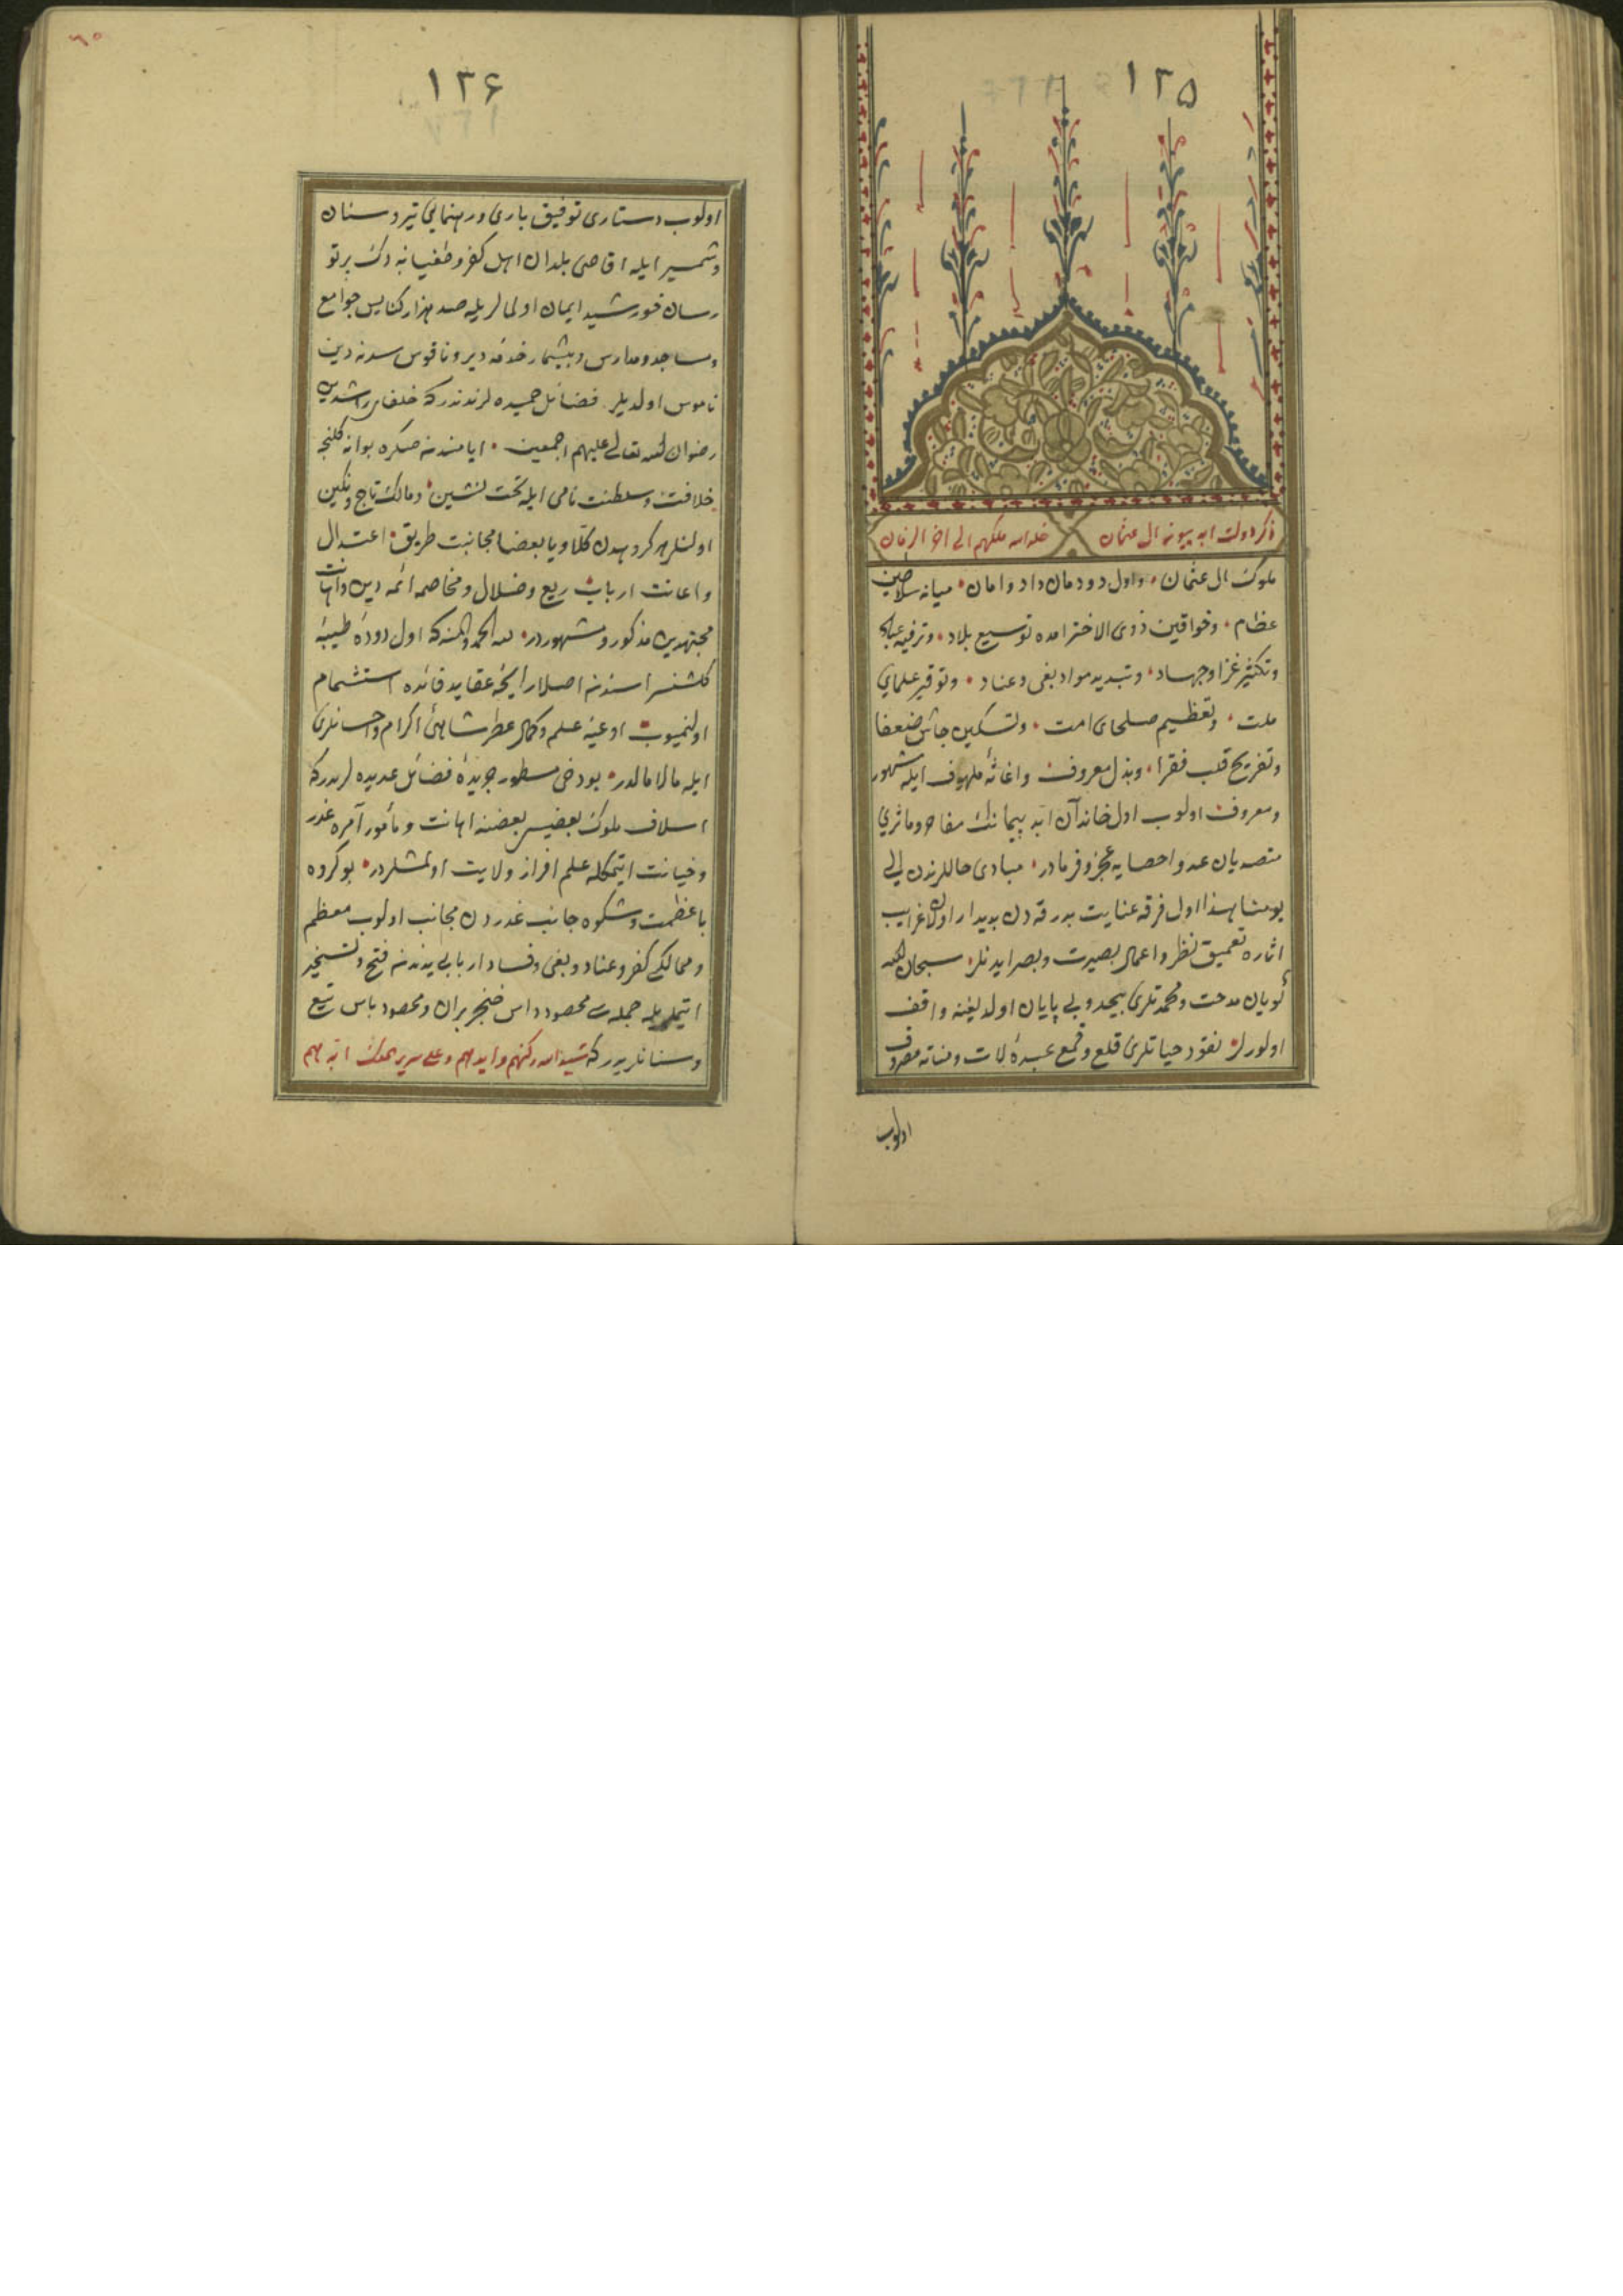 ١٢٥
ذكر دولت ابد پيوند ال عثمان خلد الله ملكهم الى اخر الزمان
ملوك ال عثمان و اول دودمان داد و امان ميانه سلاطين
عظام و خواقين ذوى الاحترامده توسيع بلاد و ترفيه عباد
و تكثير غزا و جهاد و تبديد مواد بغى و عناد و توقير علماى
ملت و تعظيم صلحاى امت و تسكين جاش ضعفا
و تفريح قلب فقرا و بذل معروف و اغاثۀ ملهوف ايله مشهور
و معروف اولوب اول خاندان ابد پيمانك مفاخر و ماثرى
متصديان عد و احصايه عجز و فرمادر مبادى حاللرندن الى
يومنا هذا اول فرقه عنايت بدرقه دن بديدار اولان غرايب
اثاره تعميق نظر و اعمال بصيرت و بصر ايدنلر سبحان الله
كويان مدحت و محمدتلرى بيحد و بى پايان اولديغنه واقف
اولورلر نقود حياتلرى قلع و قمع عبدۀ لات و مناته مصروف
اولوب
١٢۶
٦٥
اولوب دستارى توفيق بارى و رهنمايى تير و سنان
و شمشير ايله اقاصى بلدان اهل كفر و طغيانه دك پرتو
رسان خورشيد ايمان اولمالريله صد هزار كنايس جوامع
و مساجد و مدارس و بيشمار خدمه دير و ناقوس سدنه دين
ناموس اولديلر فضائل حميده لرندندر كه خلفاى راشدين
رضوان الله تعالى عليهم اجمعين ايامندنه صكره بوانه كلنجه
خلافت و سلطنت نامى ايله تخت نشين و مالك تاج و نكين
اولنلر هر كروهدن كلا و يا بعضا مجانبت طريق اعتدال
و اعانت ارباب زيغ و ضلال و مخاصمه ائمه دين و اهانت
مجتهدين مذكور و مشهوردر لله الحمد والمنه كه اول دودۀ طيبۀ
كلشنسراسندنه اصلا رايحۀ عقايد فائده استشمام
اولنميوب اوعيۀ علم و كمال عطر شاهئ اكرام و احسانلرى
ايله مالامالدر بو دخى مسطور جريدۀ فضائل عديده لريدر كه
اسلاف ملوك بعضيسى بعضنه اهانت و مأمور آمره غدر
و خيانت ايتمكله علم افراز ولايت اولمشلردر بو كروه
با عظمت و شكوه جانب غدردن مجانب اولوب معظم
و ممالكى كفر و عناد و بغى و فساد اربابى يدندنه فتح و تسخير
ايتملريله جمله سى محصود داس خنجر بران و محصود باس تيغ
و سنانلريدر كه شيد الله ركنهم و ايدهم و على سرير الملك ابدهم